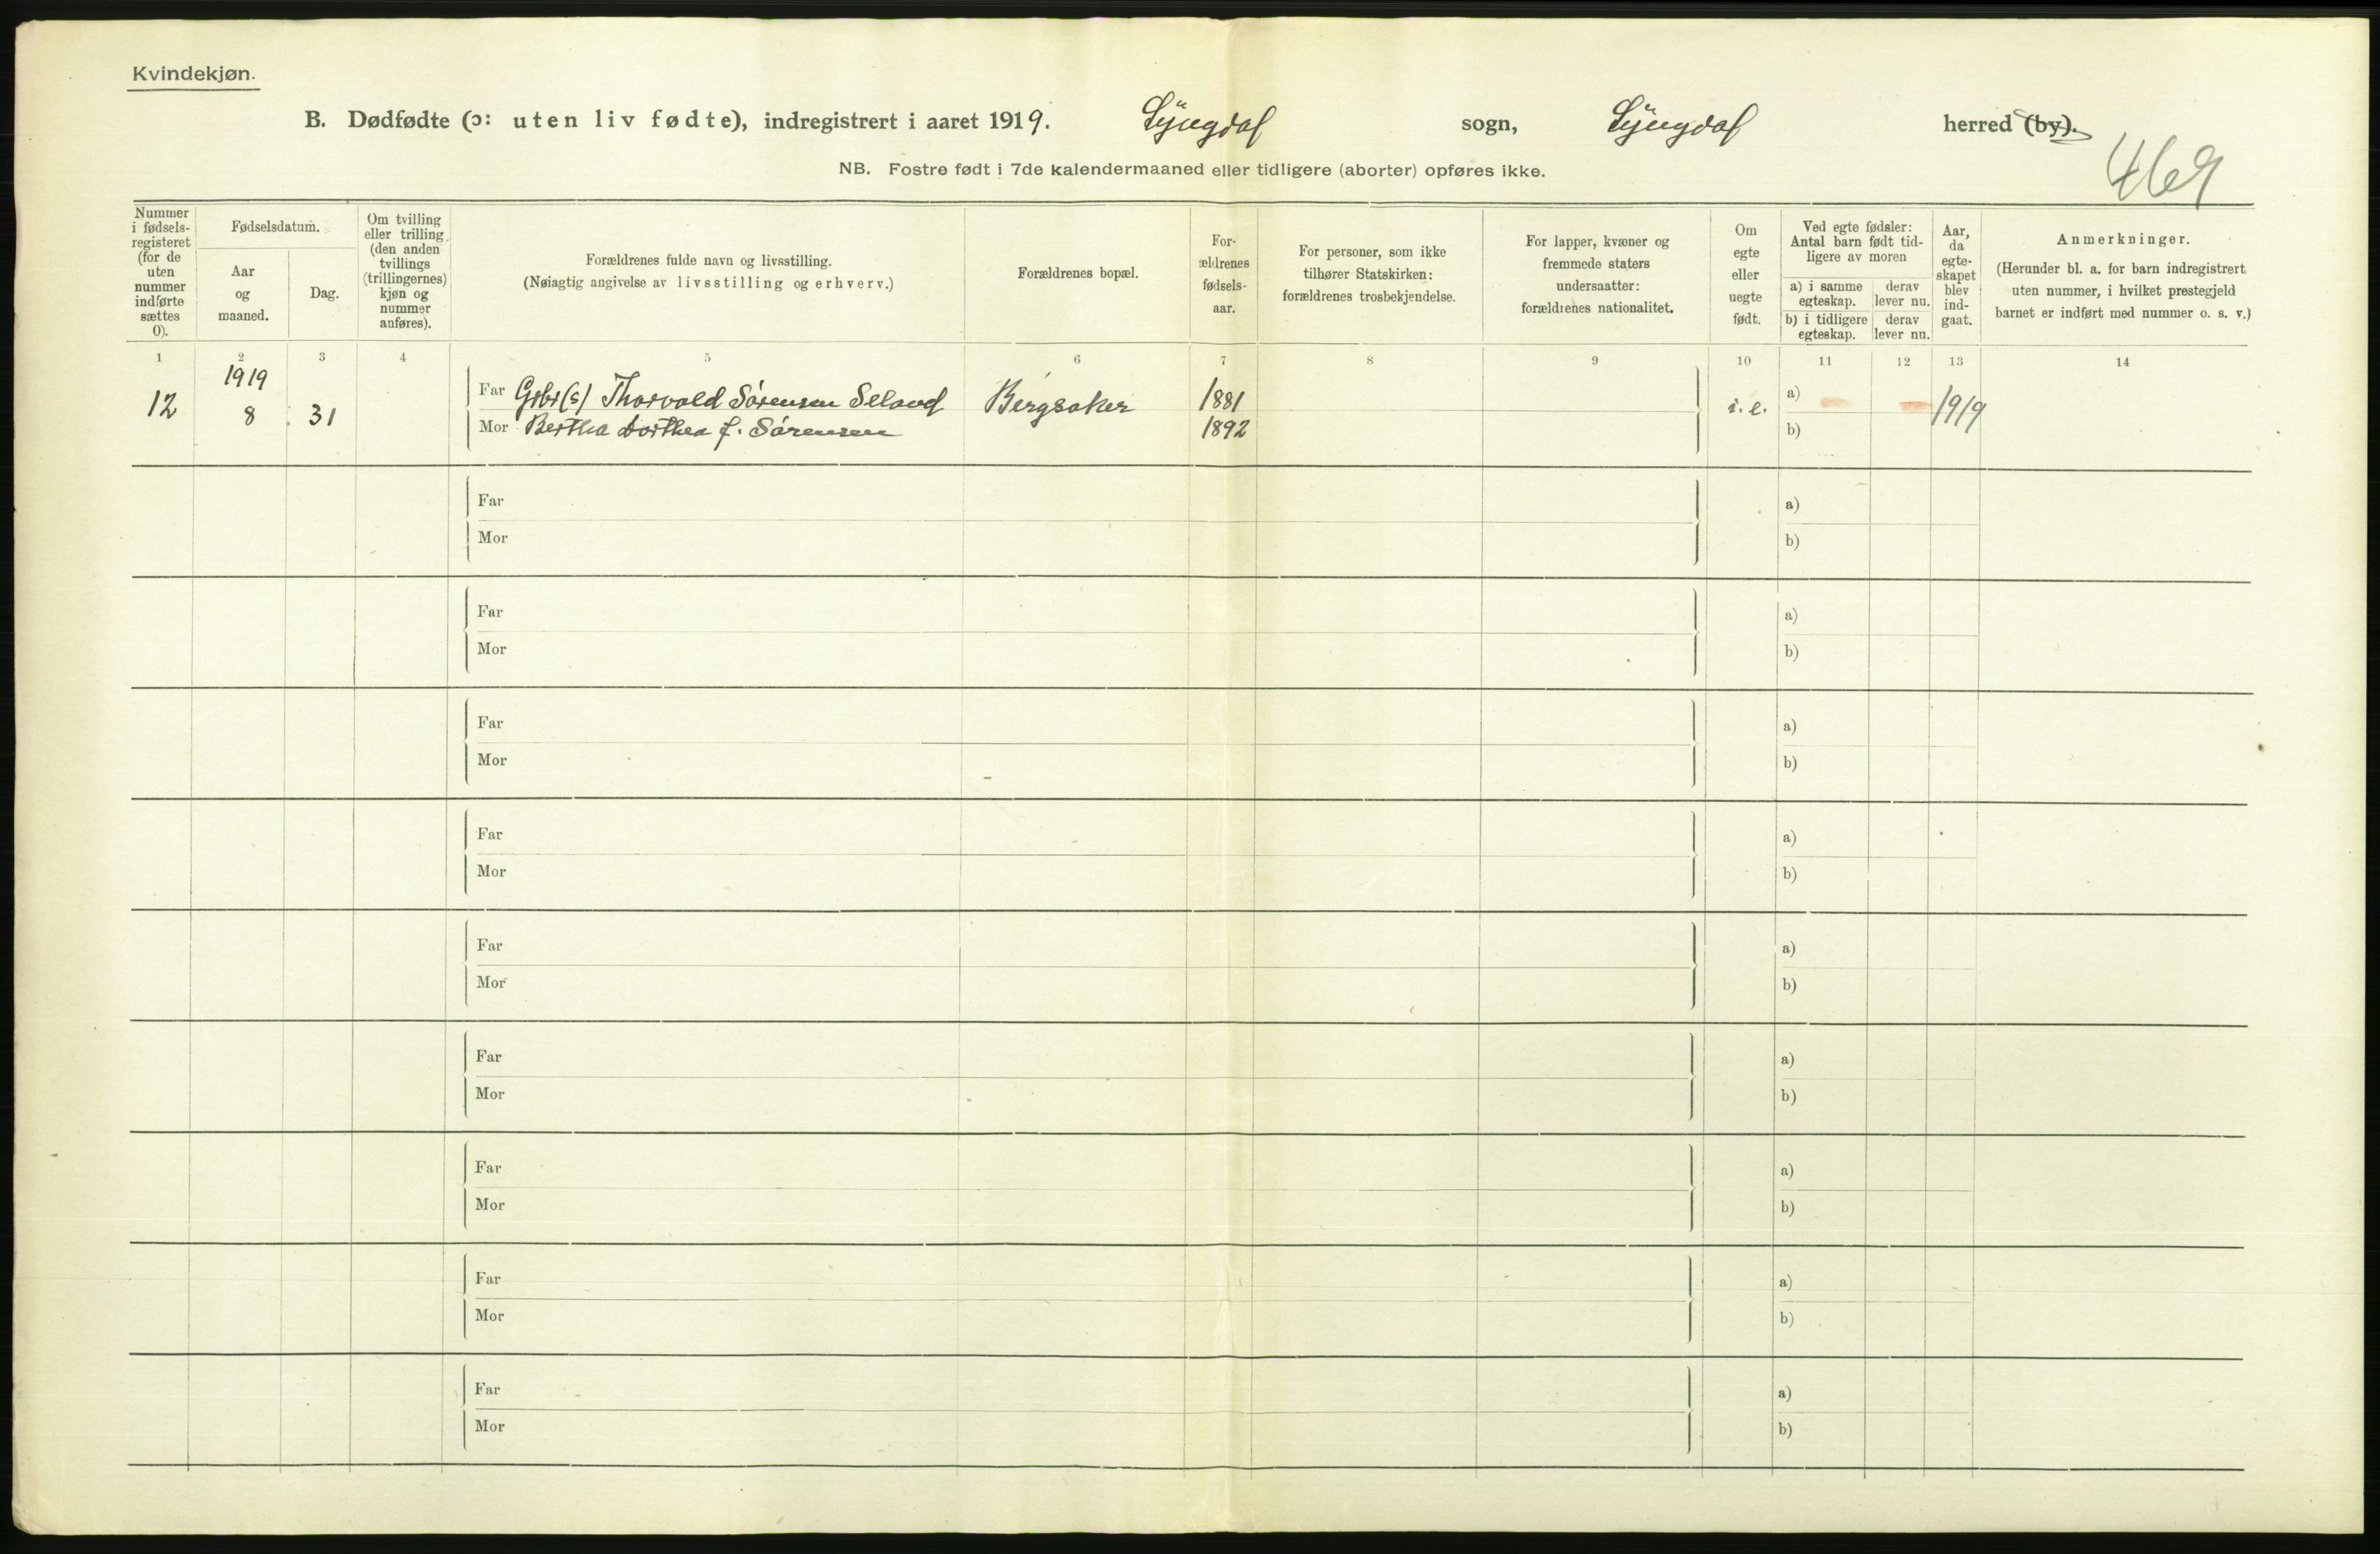 Kvindekjøn.
B. Dødfødte (ɔ: uten liv fødte), indregistrert i aaret 1919. Lyngdal sogn, Lyngdal herred (by).
NB. Fostre født i 7de kalendermaaned eller tidligere (aborter) opføres ikke.
469
Nummer
i fødsels-
registeret
(for de
uten
nummer
indførte
sættes
0).
Fødselsdatum.
Aar
og
maaned.
Dag.
Om tvilling
eller trilling
(den anden
tvillings
(trillingernes)
kjøn og
nummer
anføres).
Forældrenes fulde navn og livsstilling.
(Nøiagtig angivelse av livsstilling og erhverv.)
Forældrenes bopæl.
For-
ældrenes
fødsels-
aar.
For personer, som ikke
tilhører Statskirken:
forældrenes trosbekjendelse.
For lapper, kvæner og
fremmede staters
undersaatter:
forældrenes nationalitet.
Om
egte
eller
uegte
født.
Ved egte fødsler:
Antal barn født tid-
ligere av moren
a) i samme
egteskap.
derav
lever nu.
b) i tidligere
egteskap.
derav
lever nu.
Aar,
da
egte-
skapet
blev
ind-
gaat.
Anmerkninger.
(Herunder bl. a. for barn indregistrert
uten nummer, i hvilket prestegjeld
barnet er indført med nummer o. s. v.)
1 2 3 4 5 6 7 8 9 10 11 12 13 14
1919
12 8 31 Far Gbr(s) Thorvald Sörensen Seland Bergsaker 1881 i. e. a) — — 1919
Mor Bertha Dorthea f. Sörensen 1892 b)
Far a)
Mor b)
Far a)
Mor b)
Far a)
Mor b)
Far a)
Mor b)
Far a)
Mor b)
Far a)
Mor b)
Far a)
Mor b)
Far a)
Mor b)
Far a)
Mor b)